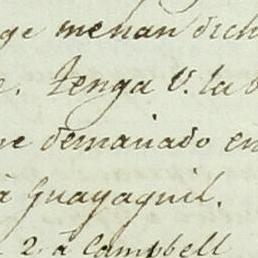 menan dich
. Tenga V. la b
ne demaciado en
à Guayaquil.
2 à Campbell